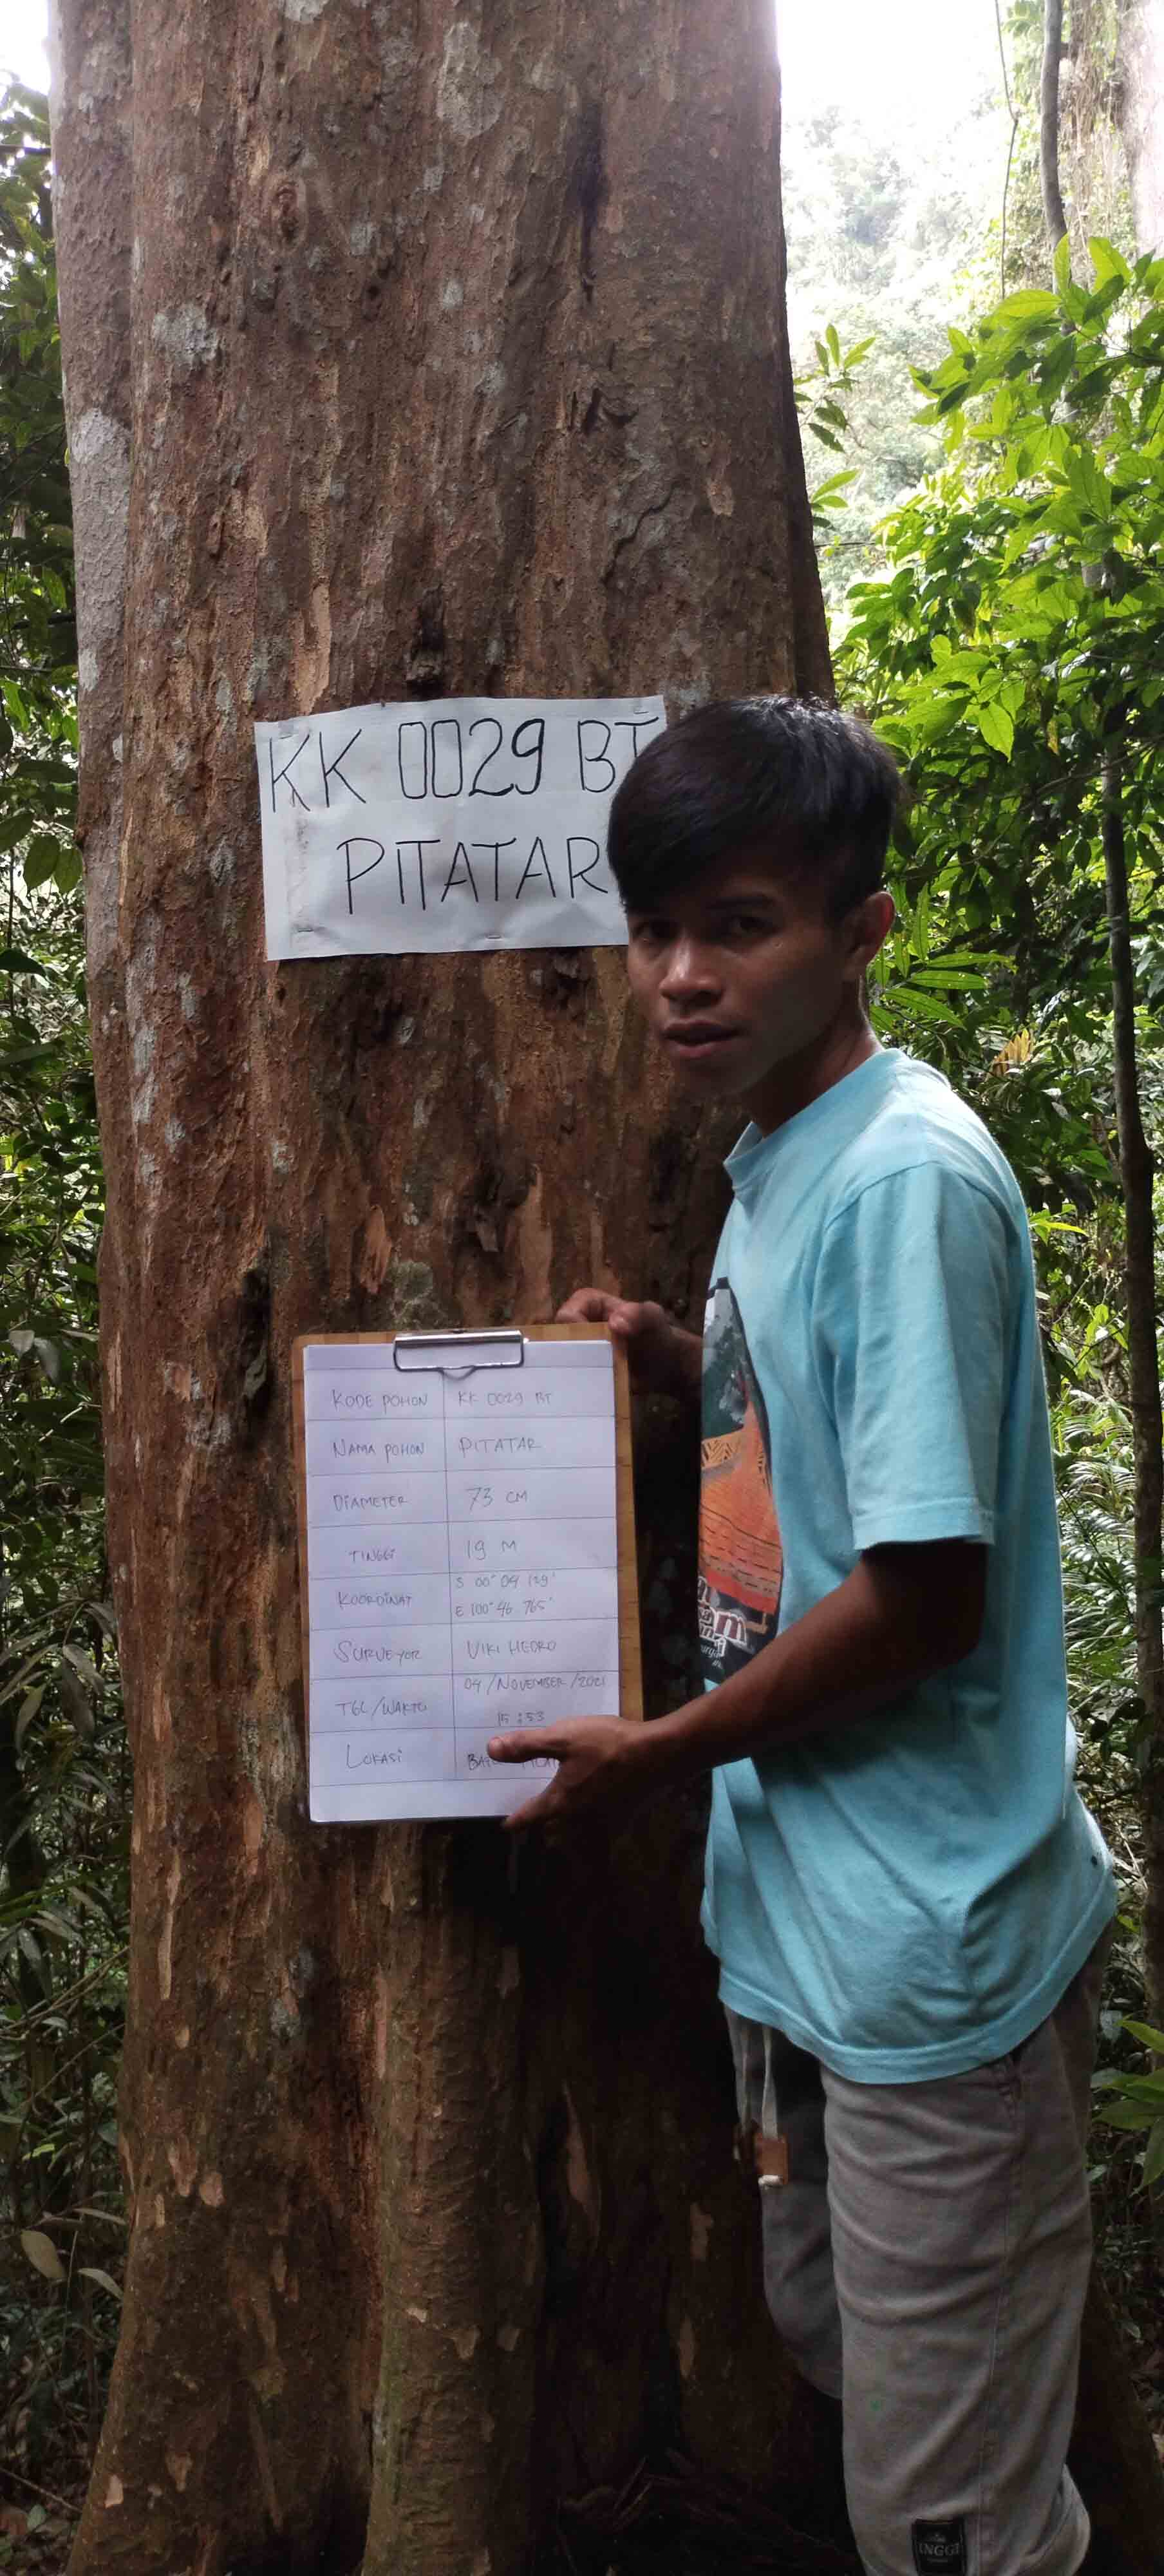 KK 0029 BT
PITATAR
KODE POHON KK 0029 BT
NAMA POHON PITATAR
DIAMETER 73 CM
TINGGI 19 M
KOORDINAT S 00° 04 129'
E 100° 46 765'
SURVEYOR VIKI HEDRO
TGL/WAKTU 04/NOVEMBER/2021
15:53
LOKASI
INGGI